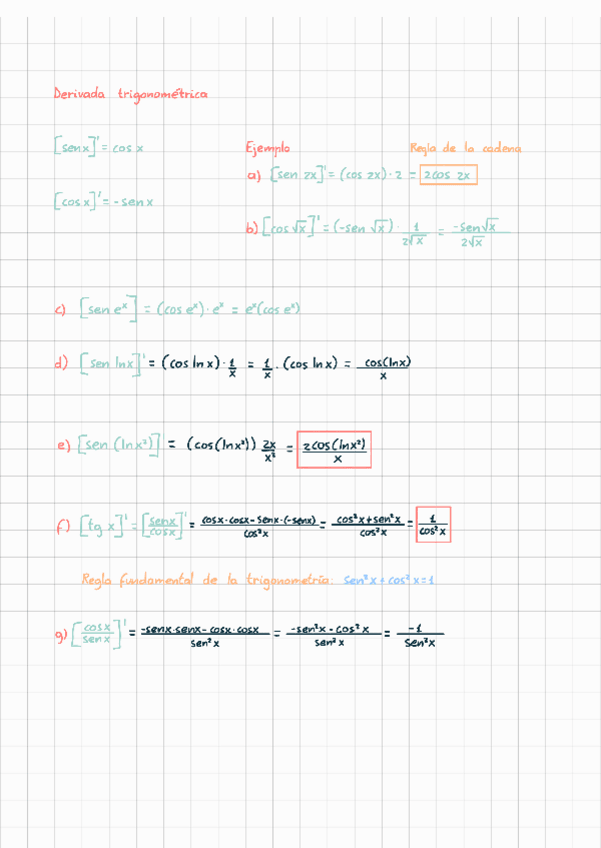 Derivada trigonométrica
[sen x]' = cos x
Ejemplo
Regla de la cadena
a) [sen 2x]' = (cos 2x)·2 = 2cos 2x
[cos x]' = -sen x
b) [cos √x]' = (-sen √x) · 1/2√x = -sen√x/2√x
c) [sen eˣ] = (cos eˣ)·eˣ = eˣ(cos eˣ)
d) [sen lnx]' = (cos ln x)·1/x = 1/x · (cos ln x) = cos(lnx)/x
e) [sen (lnx²)] = (cos(lnx²)) 2x/x² = 2cos(lnx²)/x
f) [tg x]' = [senx/cosx]' = cosx·cosx-senx·(-senx)/cos²x = cos²x+sen²x/cos²x = 1/cos²x
Regla fundamental de la trigonometría: sen²x + cos²x=1
g) [cosx/senx]' = -senx·senx-cosx·cosx/sen²x = -sen²x-cos²x/sen²x = -1/sen²x